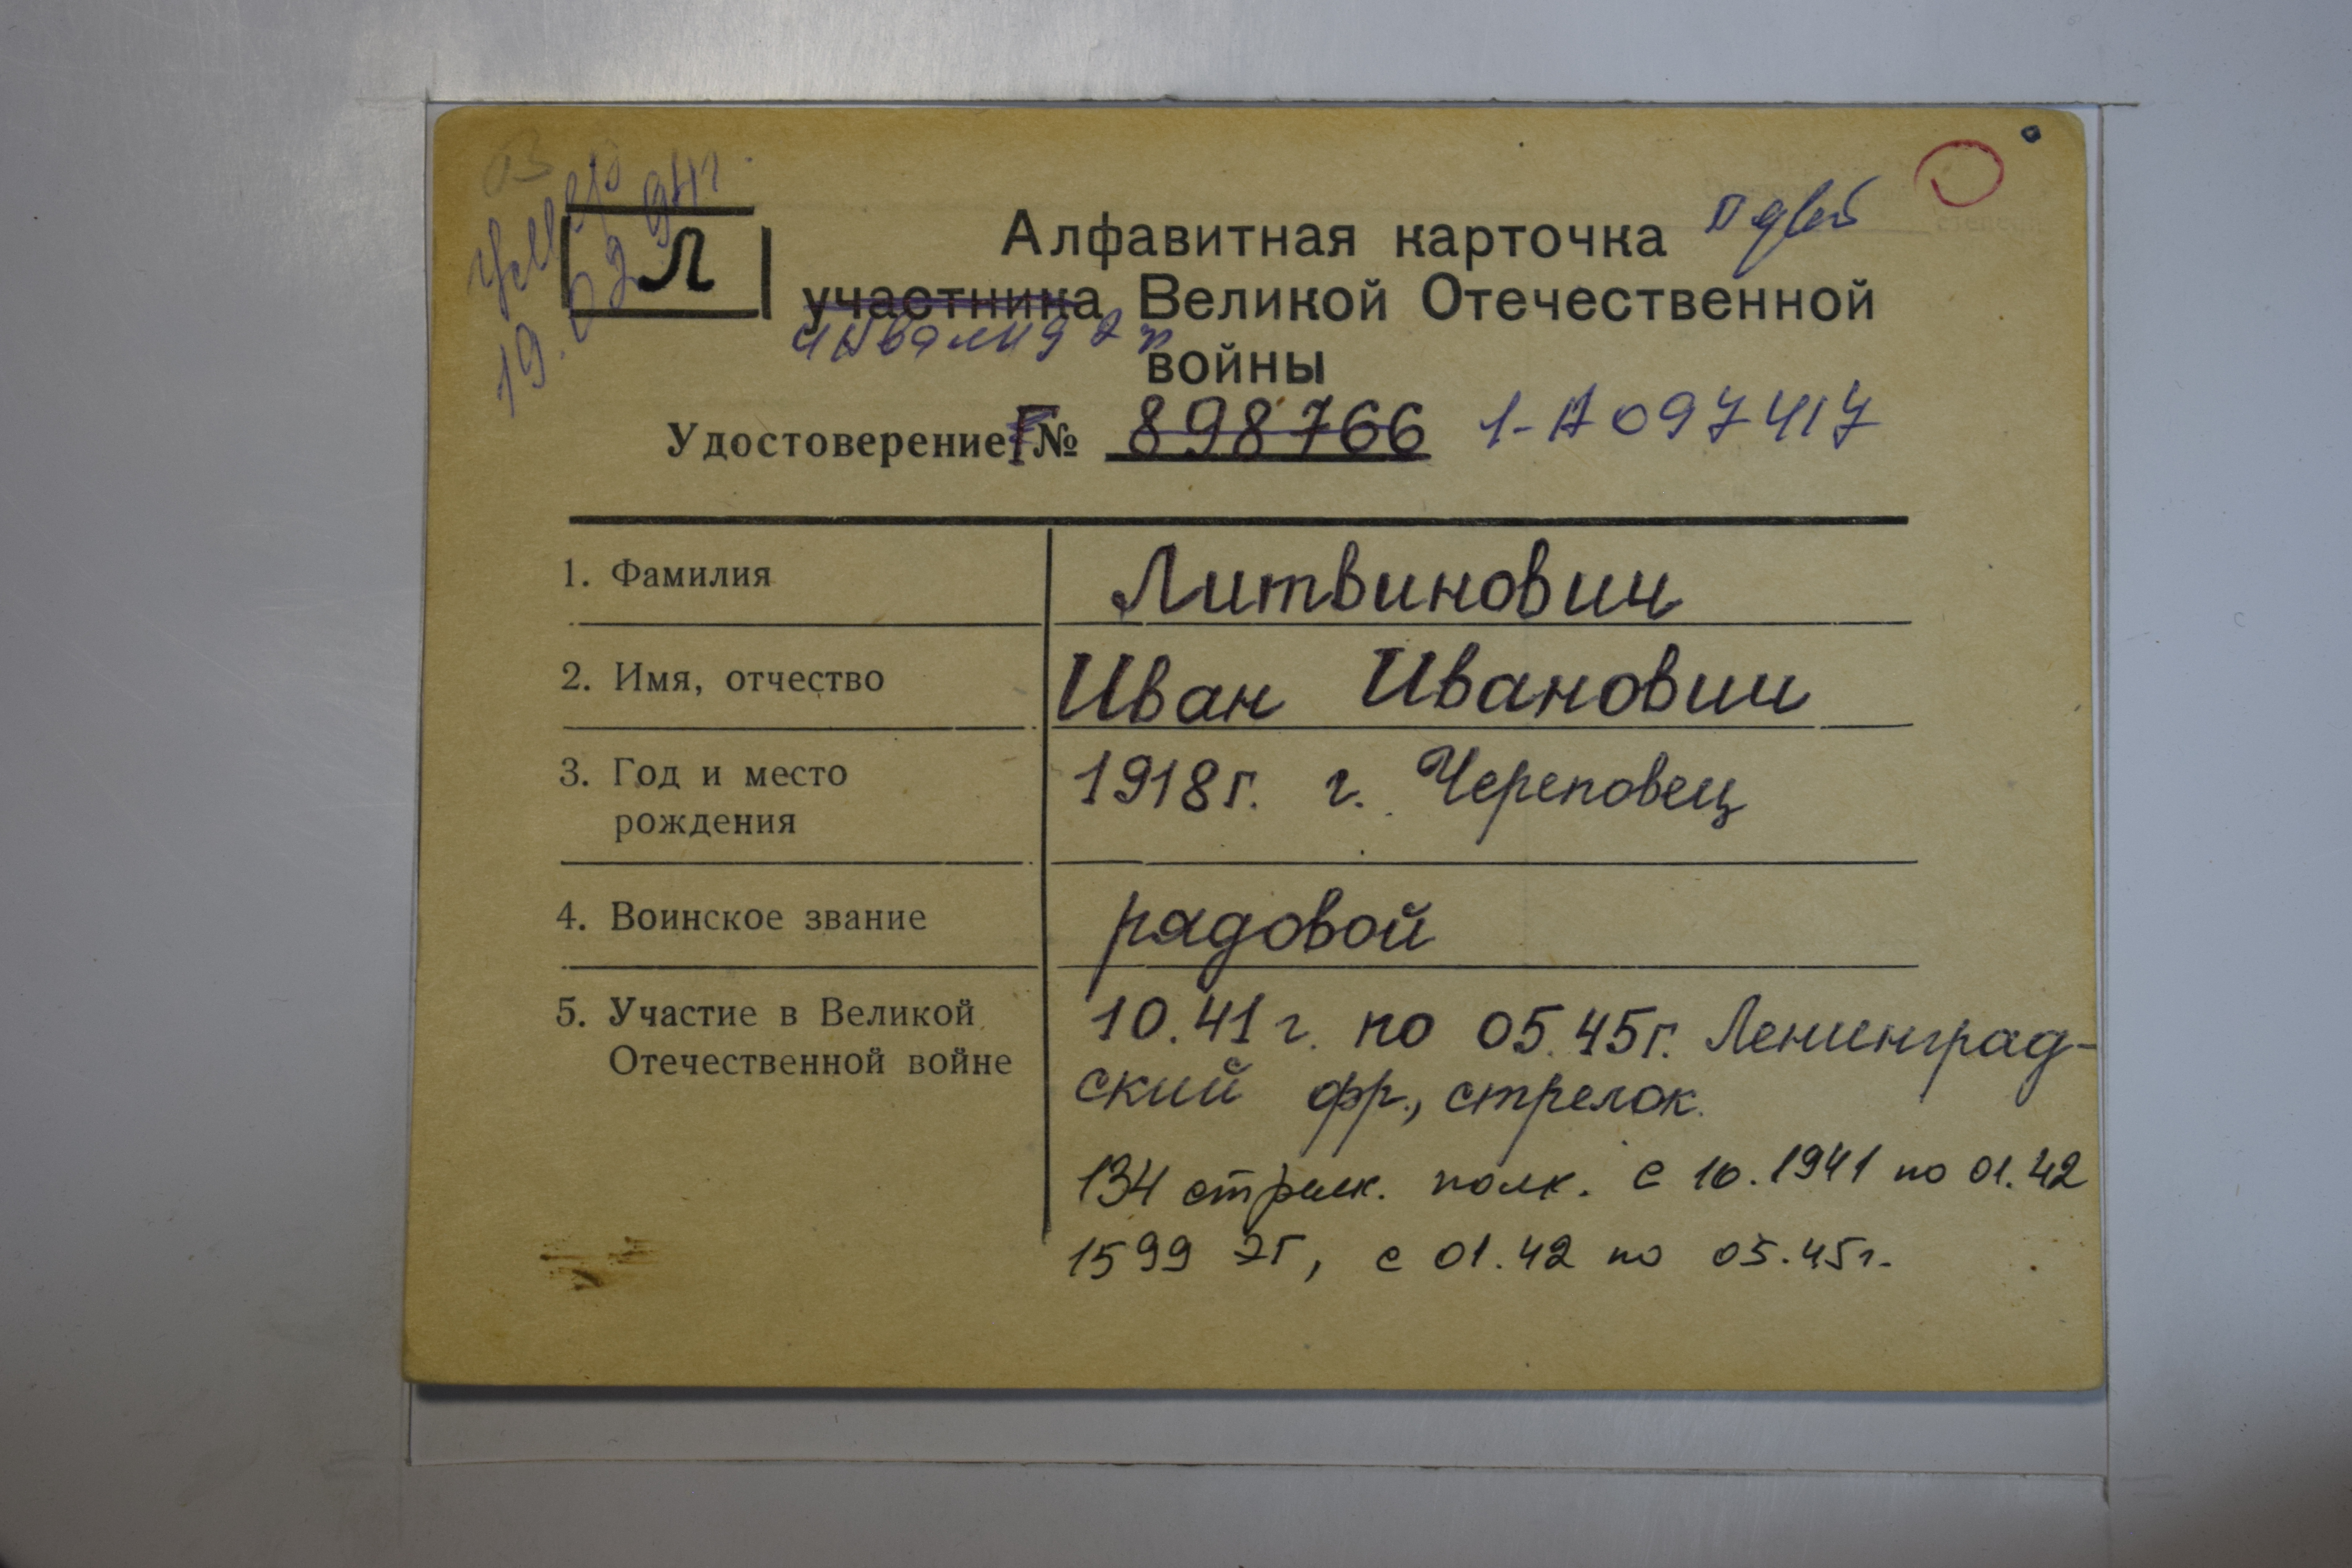 умер
19.02.94г.
Л
Алфавитная карточка
участника Великой Отечественной
инвалид 2 гр
войны
Удостоверение Г № 898766 1-А 097417
1. Фамилия Литвинович
2. Имя, отчество Иван Иванович
3. Год и место 1918г. г. Череповец
рождения
4. Воинское звание рядовой
5. Участие в Великой 10.41г. по 05.45г. Ленинград-
Отечественной войне ский фр., стрелок.
134 стрелк. полк. с 10.1941 по 01.42
1599 ЭГ, с 01.42 по 05.45г.